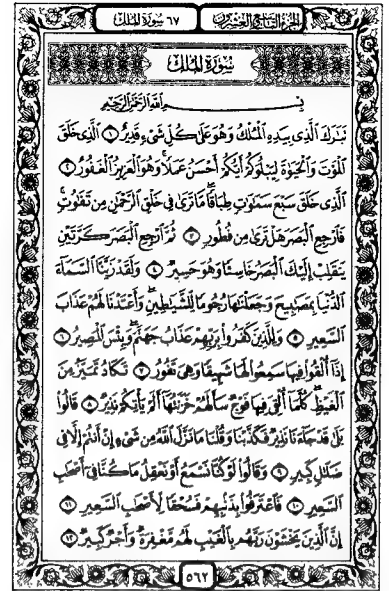 الجزء التاسع والعشرون ٦٧ سورة الملك
سُورَةُ المُلْكِ
بِسْمِ اللَّهِ الرَّحْمَٰنِ الرَّحِيمِ
تَبَٰرَكَ ٱلَّذِى بِيَدِهِ ٱلْمُلْكُ وَهُوَ عَلَىٰ كُلِّ شَىْءٍ قَدِيرٌ ١ ٱلَّذِى خَلَقَ
ٱلْمَوْتَ وَٱلْحَيَوٰةَ لِيَبْلُوَكُمْ أَيُّكُمْ أَحْسَنُ عَمَلًا وَهُوَ ٱلْعَزِيزُ ٱلْغَفُورُ ٢
ٱلَّذِى خَلَقَ سَبْعَ سَمَٰوَٰتٍ طِبَاقًا مَّا تَرَىٰ فِى خَلْقِ ٱلرَّحْمَٰنِ مِن تَفَٰوُتٍ
فَٱرْجِعِ ٱلْبَصَرَ هَلْ تَرَىٰ مِن فُطُورٍ ٣ ثُمَّ ٱرْجِعِ ٱلْبَصَرَ كَرَّتَيْنِ
يَنقَلِبْ إِلَيْكَ ٱلْبَصَرُ خَاسِئًا وَهُوَ حَسِيرٌ ٤ وَلَقَدْ زَيَّنَّا ٱلسَّمَآءَ
ٱلدُّنْيَا بِمَصَٰبِيحَ وَجَعَلْنَٰهَا رُجُومًا لِّلشَّيَٰطِينِ وَأَعْتَدْنَا لَهُمْ عَذَابَ
ٱلسَّعِيرِ ٥ وَلِلَّذِينَ كَفَرُوا۟ بِرَبِّهِمْ عَذَابُ جَهَنَّمَ وَبِئْسَ ٱلْمَصِيرُ ٦
إِذَآ أُلْقُوا۟ فِيهَا سَمِعُوا۟ لَهَا شَهِيقًا وَهِىَ تَفُورُ ٧ تَكَادُ تَمَيَّزُ مِنَ
ٱلْغَيْظِ كُلَّمَآ أُلْقِىَ فِيهَا فَوْجٌ سَأَلَهُمْ خَزَنَتُهَآ أَلَمْ يَأْتِكُمْ نَذِيرٌ ٨ قَالُوا۟
بَلَىٰ قَدْ جَآءَنَا نَذِيرٌ فَكَذَّبْنَا وَقُلْنَا مَا نَزَّلَ ٱللَّهُ مِن شَىْءٍ إِنْ أَنتُمْ إِلَّا فِى
ضَلَٰلٍ كَبِيرٍ ٩ وَقَالُوا۟ لَوْ كُنَّا نَسْمَعُ أَوْ نَعْقِلُ مَا كُنَّا فِىٓ أَصْحَٰبِ
ٱلسَّعِيرِ ١٠ فَٱعْتَرَفُوا۟ بِذَنۢبِهِمْ فَسُحْقًا لِّأَصْحَٰبِ ٱلسَّعِيرِ ١١
إِنَّ ٱلَّذِينَ يَخْشَوْنَ رَبَّهُم بِٱلْغَيْبِ لَهُم مَّغْفِرَةٌ وَأَجْرٌ كَبِيرٌ ١٢
٥٦٢